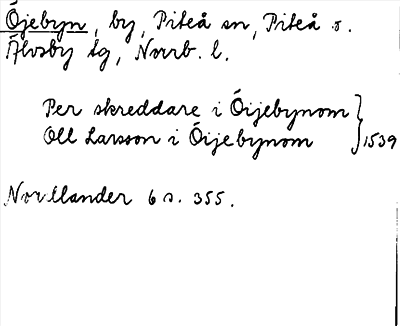 Öjebyn, by, Piteå sn, Piteå s.
Älvsby tg, Norrb. l.
Per skreddare i Öijebynom
Oll Larsson i Öijebynom } 1539
Norrlander 6 s. 355.